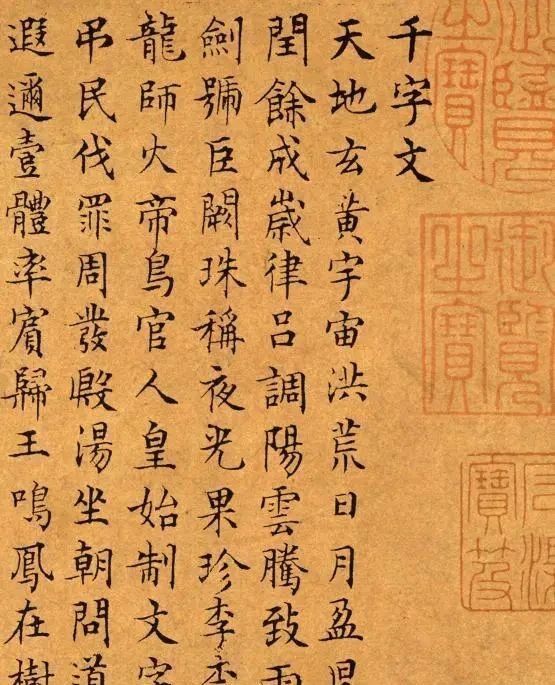 千字文
天地玄黃宇宙洪荒日月盈昃
閏餘成歲律呂調陽雲騰致雨
劍號巨闕珠稱夜光果珍李柰
龍師火帝鳥官人皇始制文字
吊民伐罪周發殷湯坐朝問道
遐邇壹體率賓歸王鳴鳳在樹